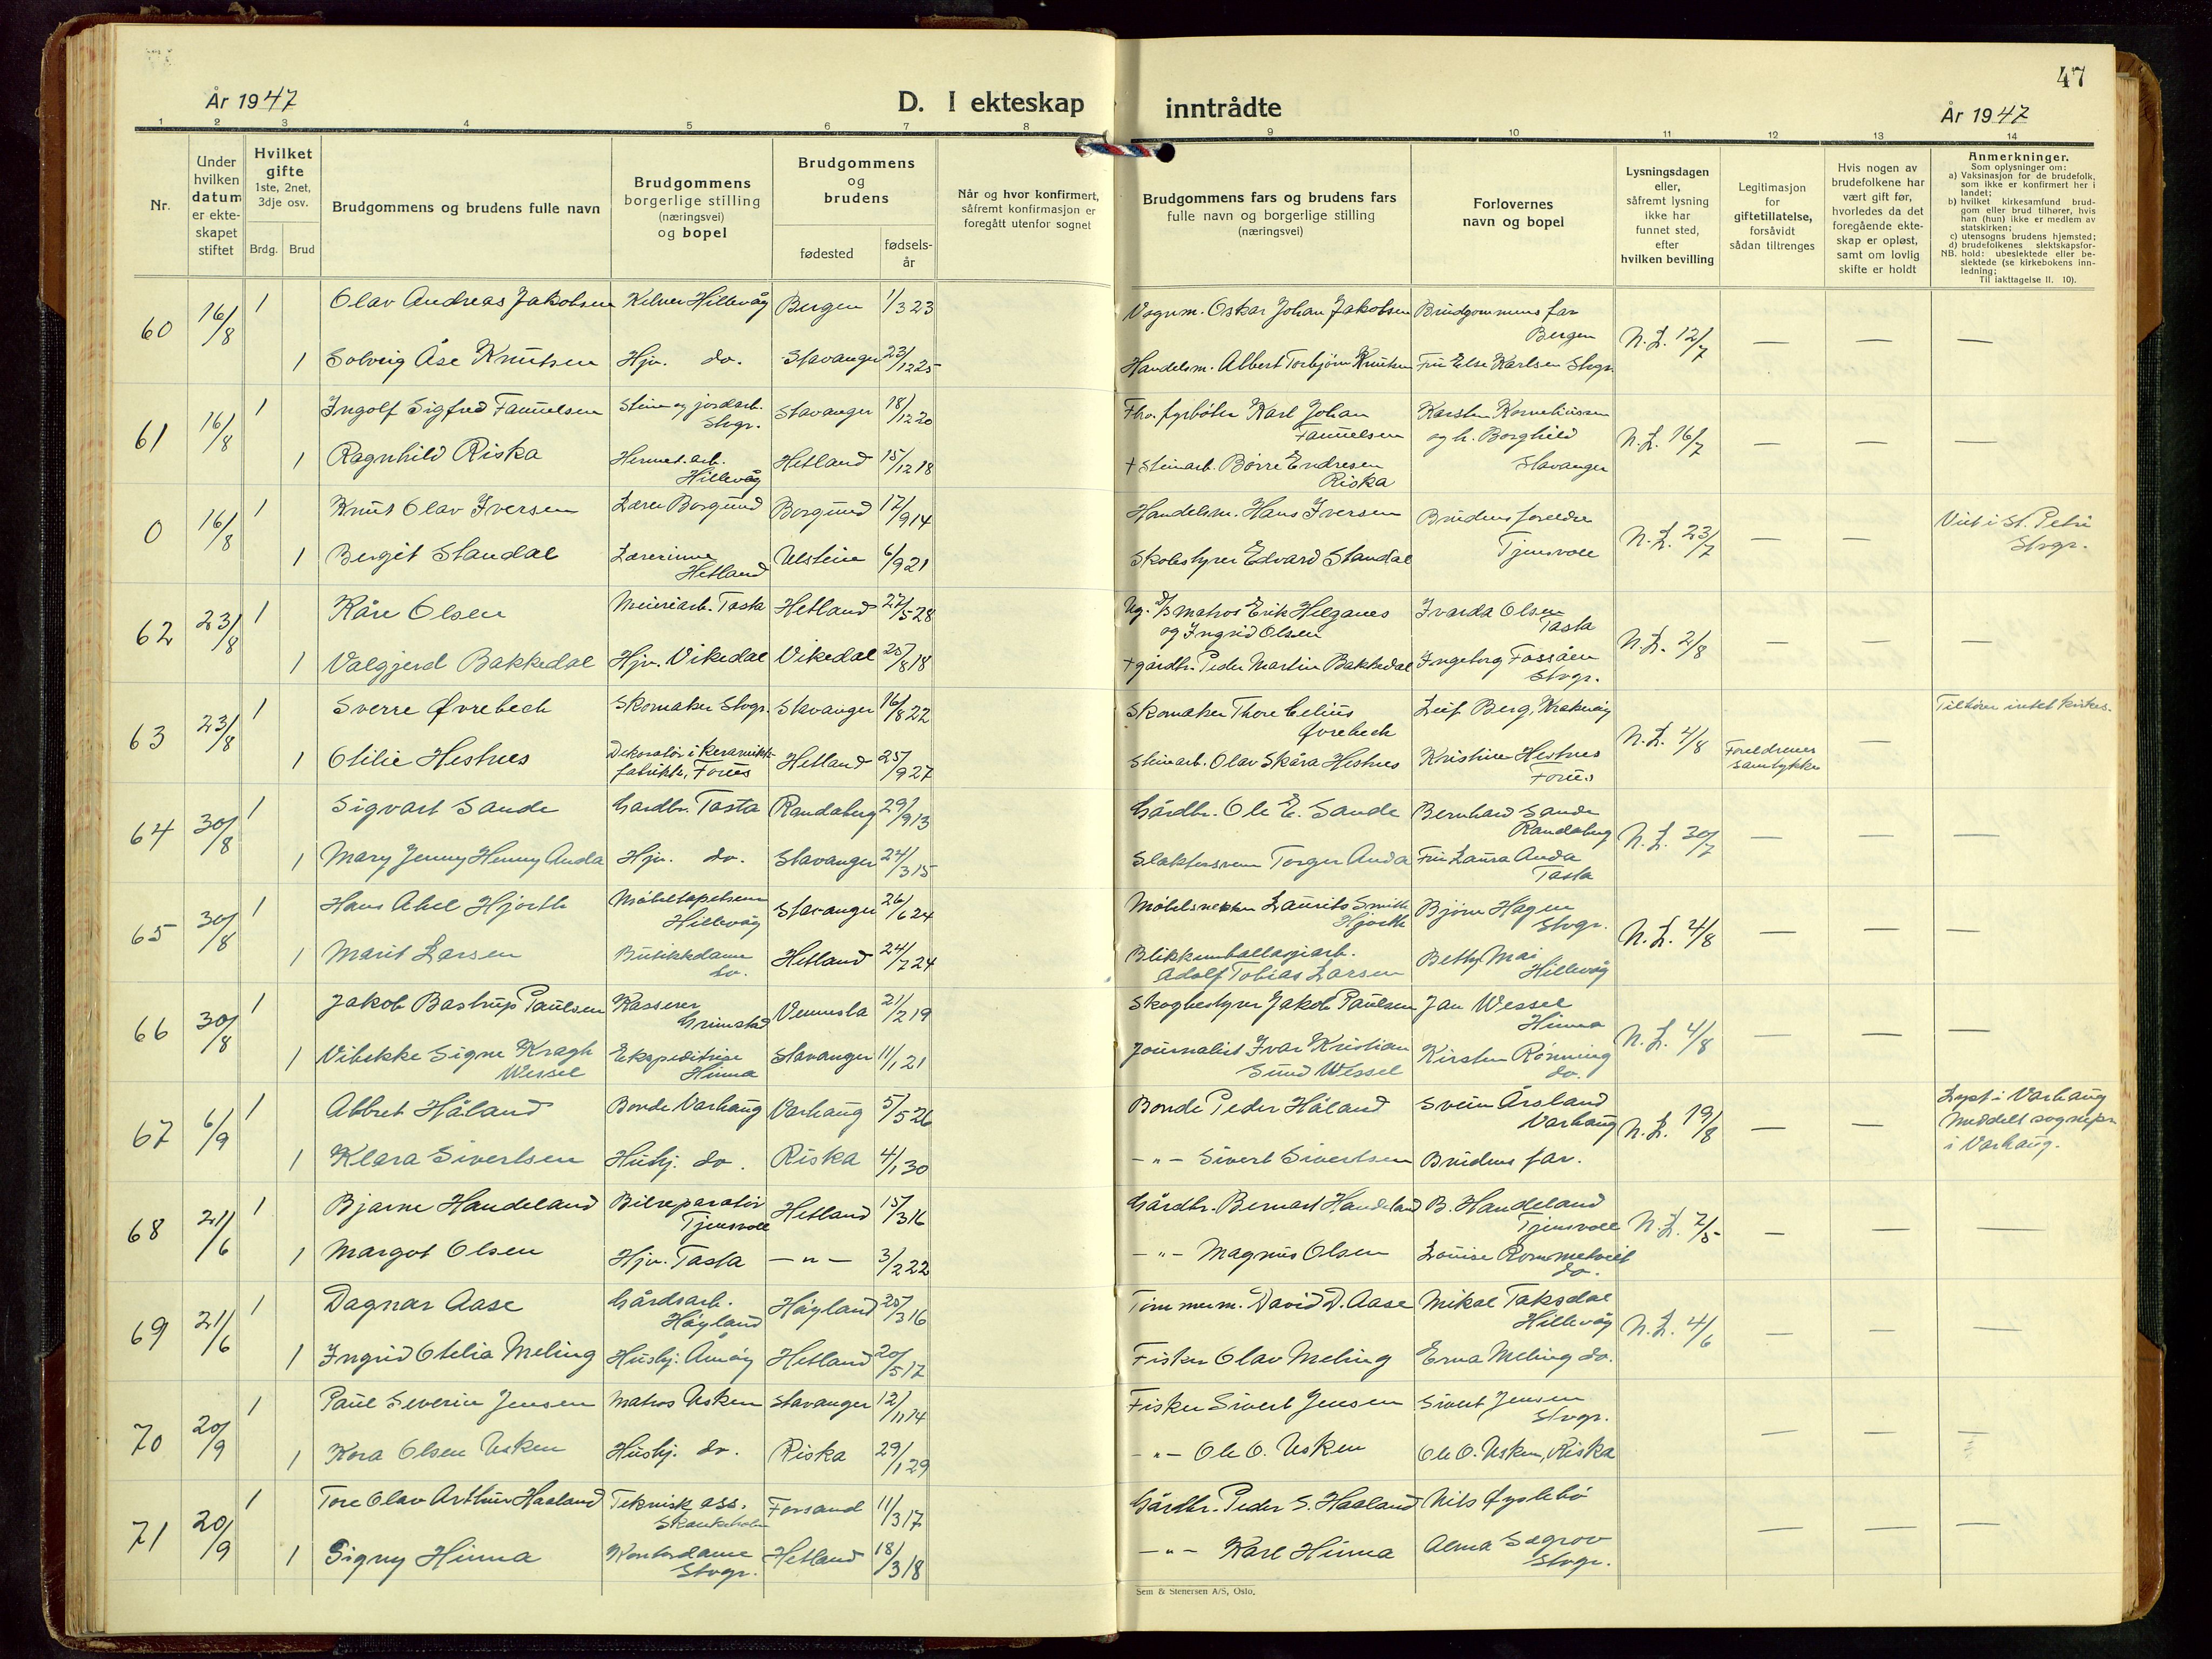 47
År 1947
D. I ekteskap inntrådte
År 1947
1 2 3 4 5 6 7 8 9 10 11 12 13 14
Nr.
Under hvilken datum er ekteskapet stiftet
Hvilket gifte
1ste, 2net, 3dje osv.
Brdg. Brud
Brudgommens og brudens fulle navn
Brudgommens borgerlige stilling (næringsvei) og bopel
Brudgommens og brudens
fødested
fødselsår
Når og hvor konfirmert, såfremt konfirmasjon er foregått utenfor sognet
Brudgommens fars og brudens fars fulle navn og borgerlige stilling (næringsvei)
Forlovernes navn og bopel
Lysningsdagen eller, såfremt lysning ikke har funnet sted, efter hvilken bevilling
Legitimasjon for giftetillatelse, forsåvidt sådan tiltrenges
Hvis nogen av brudefolkene har vært gift før, hvorledes da det foregående ekteskap er opløst, samt om lovlig skifte er holdt
Anmerkninger.
Som oplysninger om:
a) Vaksinasjon for de brudefolk, som ikke er konfirmert her i landet;
b) hvilket kirkesamfund brudgom eller brud tilhører, hvis han (hun) ikke er medlem av statskirken;
c) utensogns brudens hjemsted;
d) brudefolkenes slektskapsforhold: ubeslektede eller beslektede (se kirkebokens innledning;
NB. Til iakttagelse II. 10).
60 16/8 1 Olav Andreas Jakobsen Kelner Hillevåg Bergen 1/3 23 Vognm. Oskar Johan Jakobsen Brudgommens far Bergen N.L. 12/7 — — —
1 Solveig Åse Knutsen Hjv. do. Stavanger 23/12 25 Handelsm. Albert Torbjørn Knutsen Fru Else Karlsen Stvgr.
61 16/8 1 Ingolf Sigfred Samuelsen Stein og jordarb. Stvgr. Stavanger 18/12 20 fyrbøter Karl Johan Samuelsen Karsten Korneliussen N.L. 16/7 — — —
1 Ragnhild Riska Hermet.arb. Hillevåg Hetland 15/12 18 + Steinarb. Børre Endresen Riska og h. Borghild Stavanger
0 16/8 1 Knut Olav Iversen Lærer Borgund Borgund 17/9 14 Handelsm. Hans Iversen Brudens foreldre N.L. 23/7 — — Viet i St. Petri Stvgr.
1 Bergit Standal Lærerinne Hetland Ulstein 6/9 21 Skolestyrer Edvard Standal Tjensvoll
62 23/8 1 Kåre Olsen Meieriarb. Tasta Hetland 27/5 28 Ug. matros Erik Helganes og Ingrid Olsen Ivarda Olsen Tasta N.L. 2/8 — — —
1 Valgjerd Bakkedal Hjv. Vikedal Vikedal 25/8 18 + gårdbr. Peder Martin Bakkedal Ingeborg Fossåen Stvgr.
63 23/8 1 Sverre Øvrebech Skomaker Stvgr. Stavanger 16/8 22 Skomaker Thore Celius Øvrebech Leif Berg, N.L. 4/8 Foreldrenes samtykke — Tilhører intet kirkes.
1 Otilie Hestnes Dekoratør i keramikkfabrikk, Forus Hetland 25/9 27 Steinarb. Olav Skåra Hestnes Kristine Hestnes Forus
64 30/8 1 Sigvart Sande Gardbr. Tasta Randaberg 29/9 13 Gårdbr. Ole E. Sande Bernhard Sande Randaberg N.L. 30/7 — — —
1 Mary Jenny Henny Anda Hjv. do. Stavanger 24/3 15 Slaktersvenn Torger Anda Fru Laura Anda Tasta
65 30/8 1 Hans Abel Hjorth Møbeltapetserer Hillevåg Stavanger 26/6 24 Møbelsnekker Laurits Smith Hjorth Bjørn Hagen Stvgr. N.L. 4/8 — — —
1 Marit Larsen Butikkdame do. Hetland 24/7 24 Blikkemballasjearb. Adolf Tobias Larsen Betty Mai Hillevåg
66 30/8 1 Jakob Bastrup Paulsen Kasserer Grimstad Vennesla 21/2 19 Skogbestyrer Jakob Paulsen Jan Wessel Hinna N.L. 4/8 — — —
1 Vibekke Signe Kragh Wessel Ekspeditrise Hinna Stavanger 11/1 21 Journalist Ivar Kristian Sund Wessel Kirsten Rønning do.
67 6/9 1 Albret Håland Bonde Varhaug Varhaug 5/5 26 Bonde Peder Håland Svein Årsland Varhaug N.L. 19/8 — — Lyst i Varhaug Meddelt sognepr. i Varhaug.
1 Klara Sivertsen Hushj. do. Riska 4/1 30 -"- Sivert Sivertsen Brudens far.
68 21/6 1 Bjarne Handeland Bilreparatør Tjensvoll Hetland 15/3 16 Gårdbr. Bernart Handeland B. Handeland Tjensvoll N.L. 2/5 — — —
1 Margot Olsen Hjv. Tasta -"- 3/2 22 -"- Magnus Olsen Louise Rommetveit do.
69 21/6 1 Dagnar Aase Gårdsarb. Høyland Høyland 25/3 16 Tømmerm. David D. Aase Mikal Taksdal Hillevåg N.L. 4/6 — — —
1 Ingrid Otelia Meling Hushj. Åmøy Hetland 20/5 17 Fisker Olav Meling Erna Meling do.
70 20/9 1 Paul Severin Jensen Matros Usken Stavanger 12/11 14 Fisker Sivert Jensen Sivert Jensen Stvgr. — — —
1 Kora Olsen Usken Hushj. do. Riska 29/1 29 -"- Ole O. Usken Ole O. Usken, Riska
71 20/9 1 Tore Olav Arthur Haaland Teknisk ass. Forsand 11/3 17 Gårdbr. Peder S. Haaland Nils Øyslebø — — —
1 Signy Hinna Kontordame Stvgr. Hetland 18/3 18 -"- Karl Hinna Alma Sagrov Stvgr.
Sem & Stenersen A/S, Oslo.